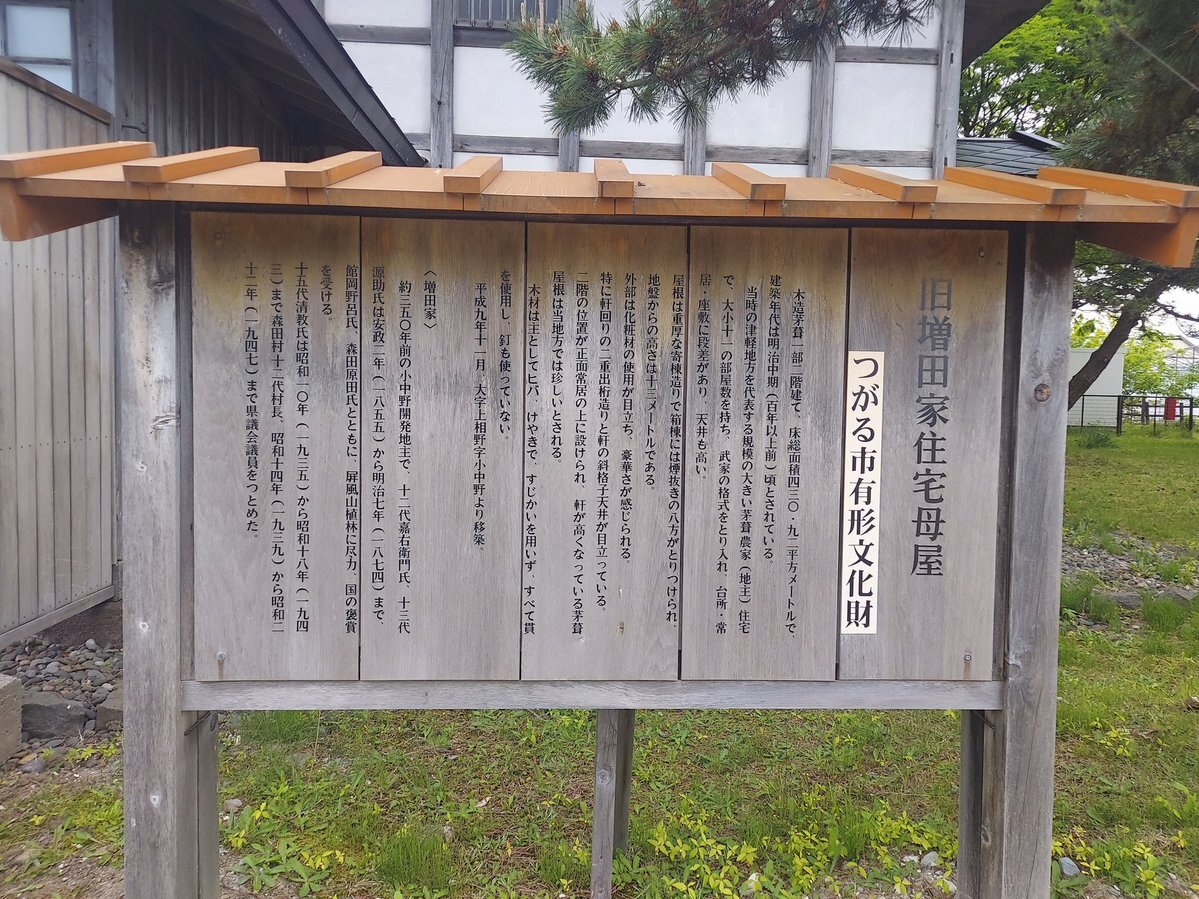 旧増田家住宅母屋
つがる市有形文化財
木造茅葺一部二階建て、床総面積四三〇・九二平方メートルで、
建築年代は明治中期(百年以上前)頃とされている。
当時の津軽地方を代表する規模の大きい茅葺農家(地主)住宅
で、大小十一の部屋数を持ち、武家の格式をとり入れ、台所・常
居・座敷に段差があり、天井も高い。
屋根は重厚な寄棟造りで箱棟には煙抜きの八方がとりつけられ、
地盤からの高さは十三メートルである。
外部は化粧材の使用が目立ち、豪華さが感じられる。
特に軒回りの二重出桁造りと軒の斜格子天井が目立っている。
二階の位置が正面常居の上に設けられ、軒が高くなっている茅葺
屋根は当地方では珍しいとされる。
木材は主としてヒバ、けやきで、すじかいを用いず、すべて貫
を使用し、釘も使っていない。
平成九年十一月、大字上相野字小中野より移築。
〈増田家〉
約三五〇年前の小中野開発地主で、十二代嘉右衛門氏、十三代
源助氏は安政二年(一八五五)から明治七年(一八七四)まで、
館岡野呂氏、森田原田氏とともに、屏風山植林に尽力、国の褒賞
を受ける。
十五代清教氏は昭和一〇年(一九三五)から昭和十八年(一九四
三)まで森田村十二代村長、昭和十四年(一九三九)から昭和二
十二年(一九四七)まで県議会議員をつとめた。